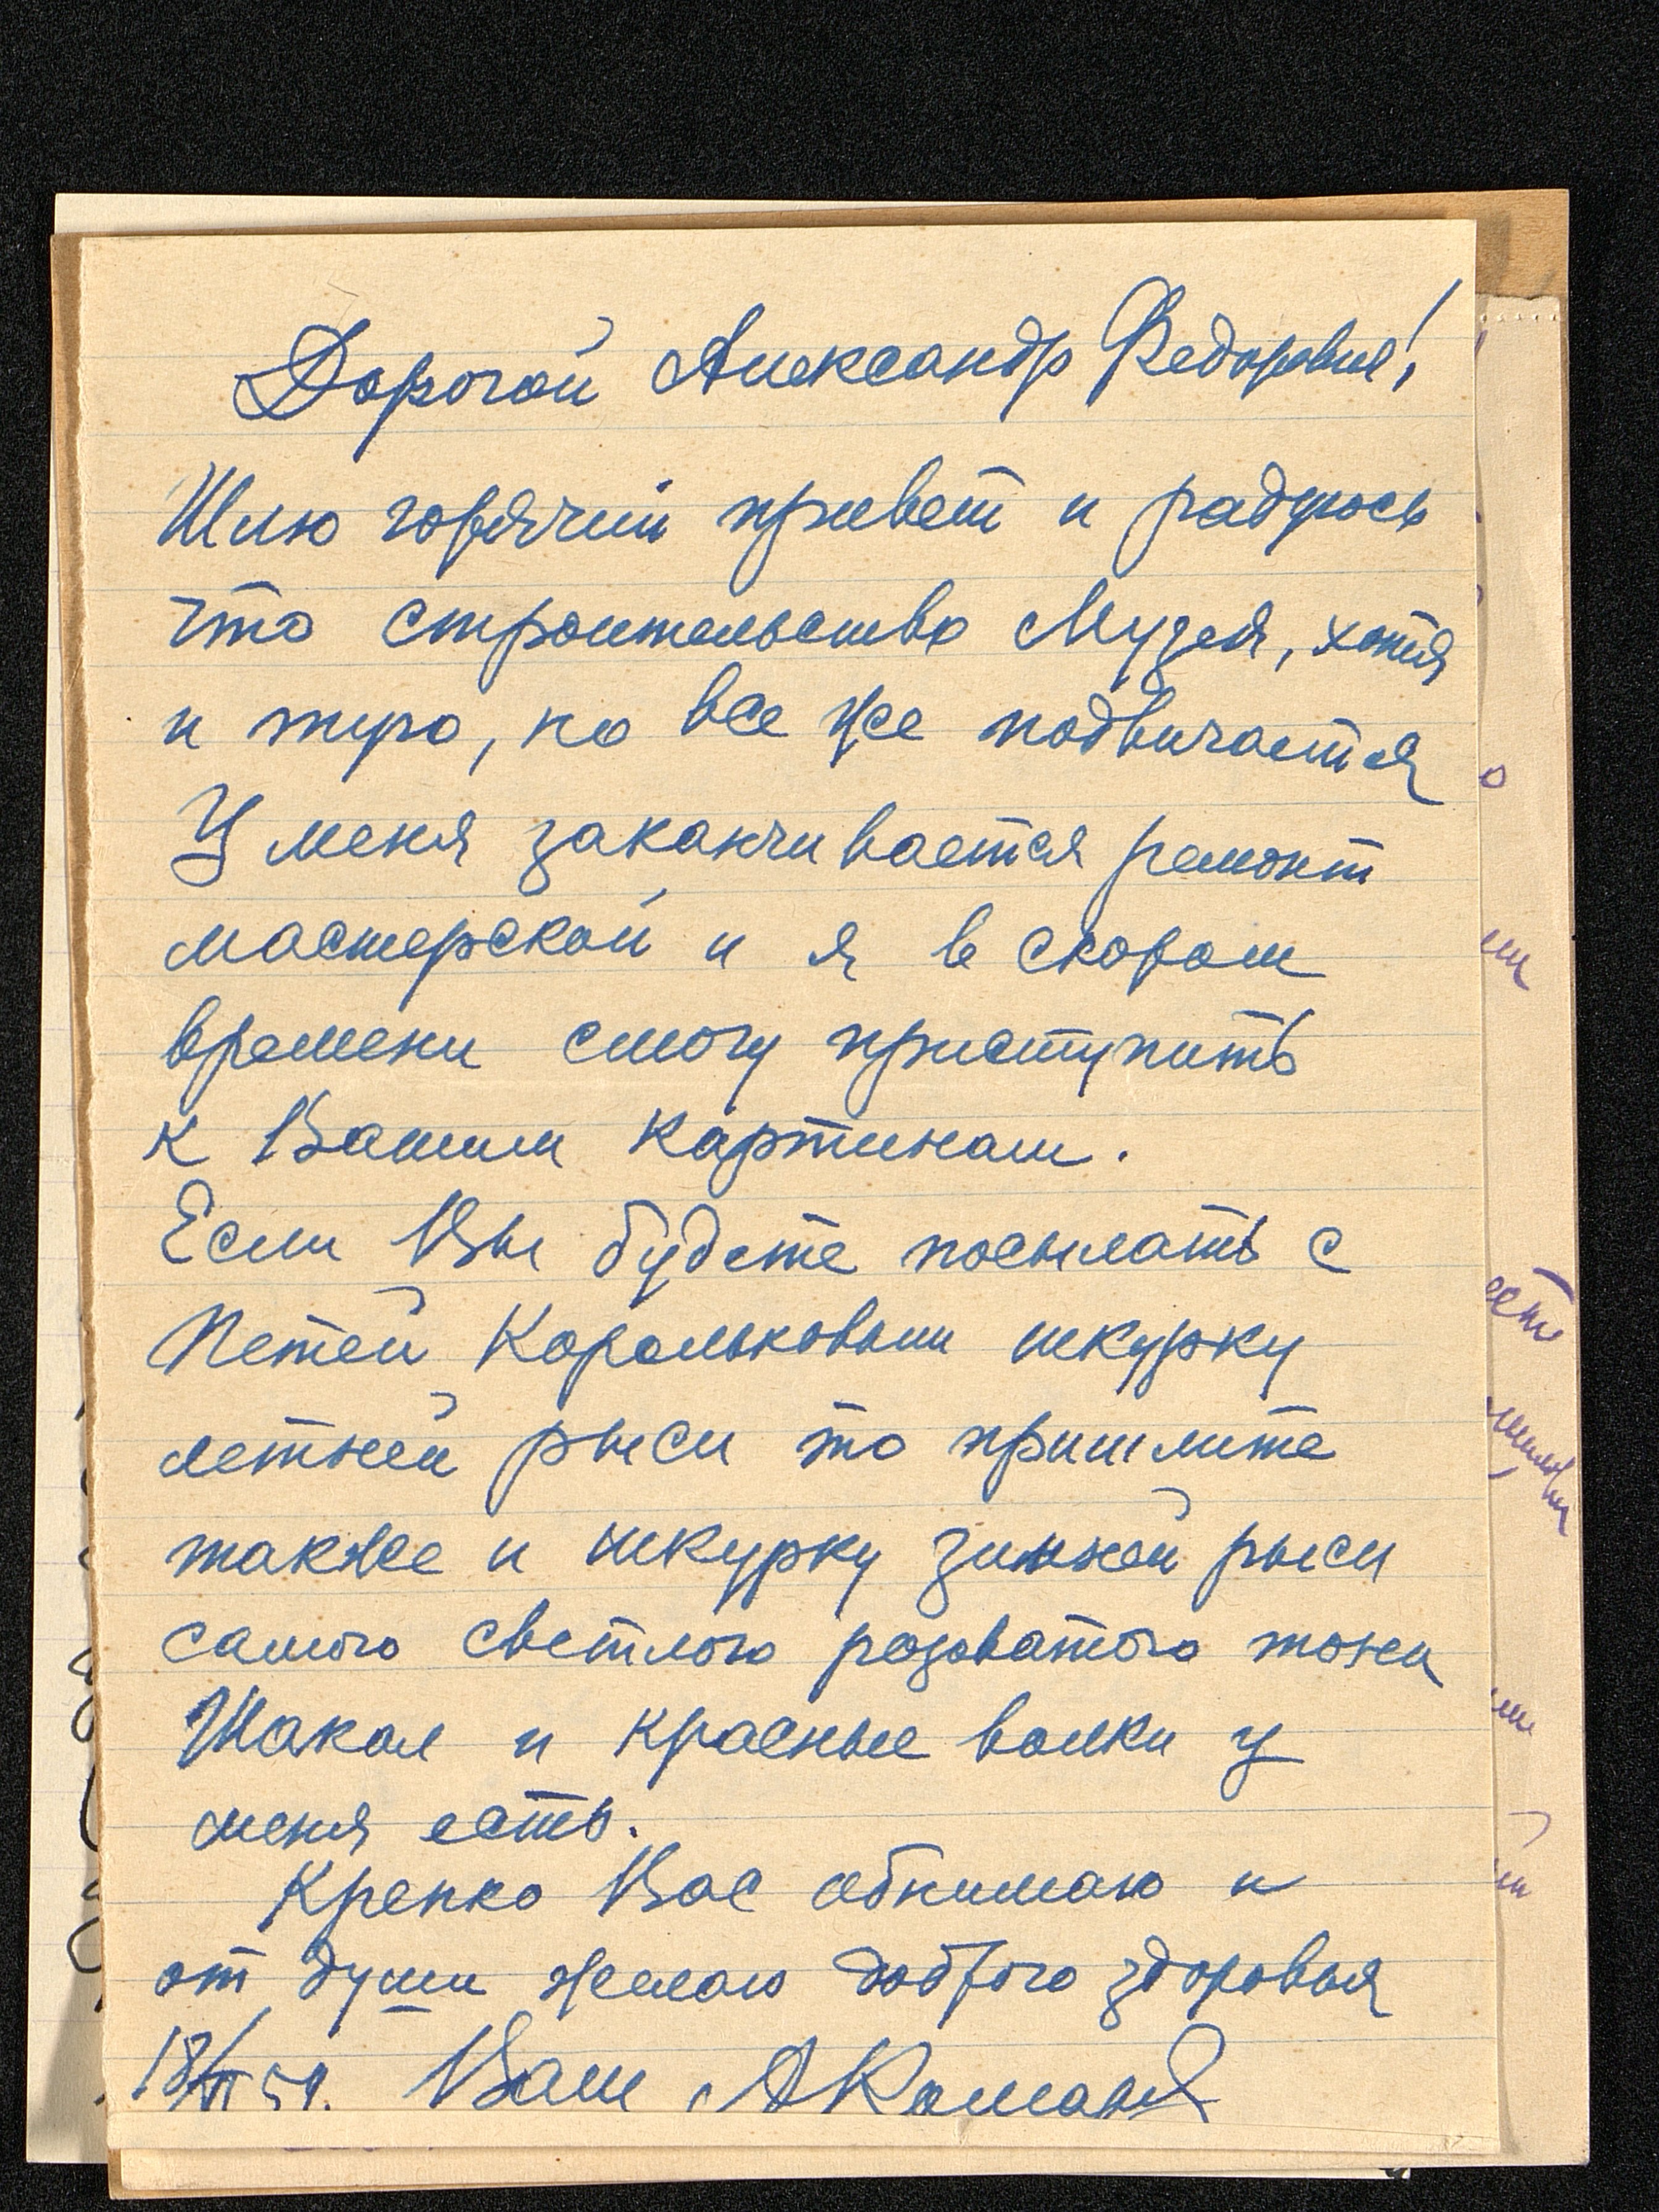 Дорогой Александр Федорович!
Шлю горячий привет и радуюсь
что строительство Музея, хотя
и туго, но все же подвигается
У меня заканчивается ремонт
мастерской и я в скором
времени смогу приступить
к Вашим картинам.
Если Вы будете посылать с
Петей Корольковым шкурку
летней рыси то пришлите
также и шкурку зимней рыси
самого светлого розоватого тона
Шакал и красные волки у
меня есть.
Крепко Вас обнимаю и
от души желаю доброго здоровья
Ваш АКомаров